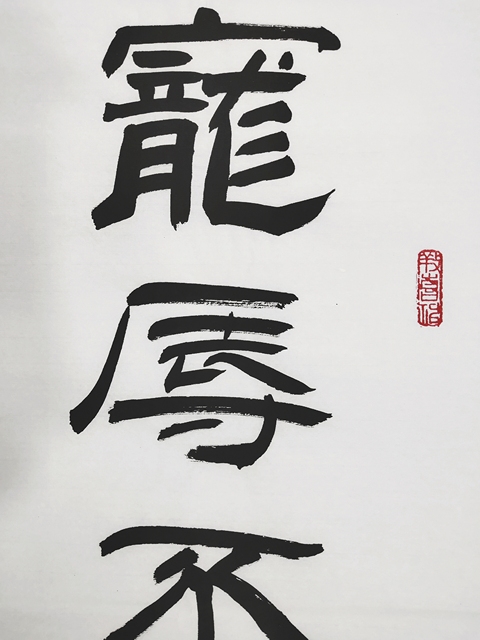 寵辱不